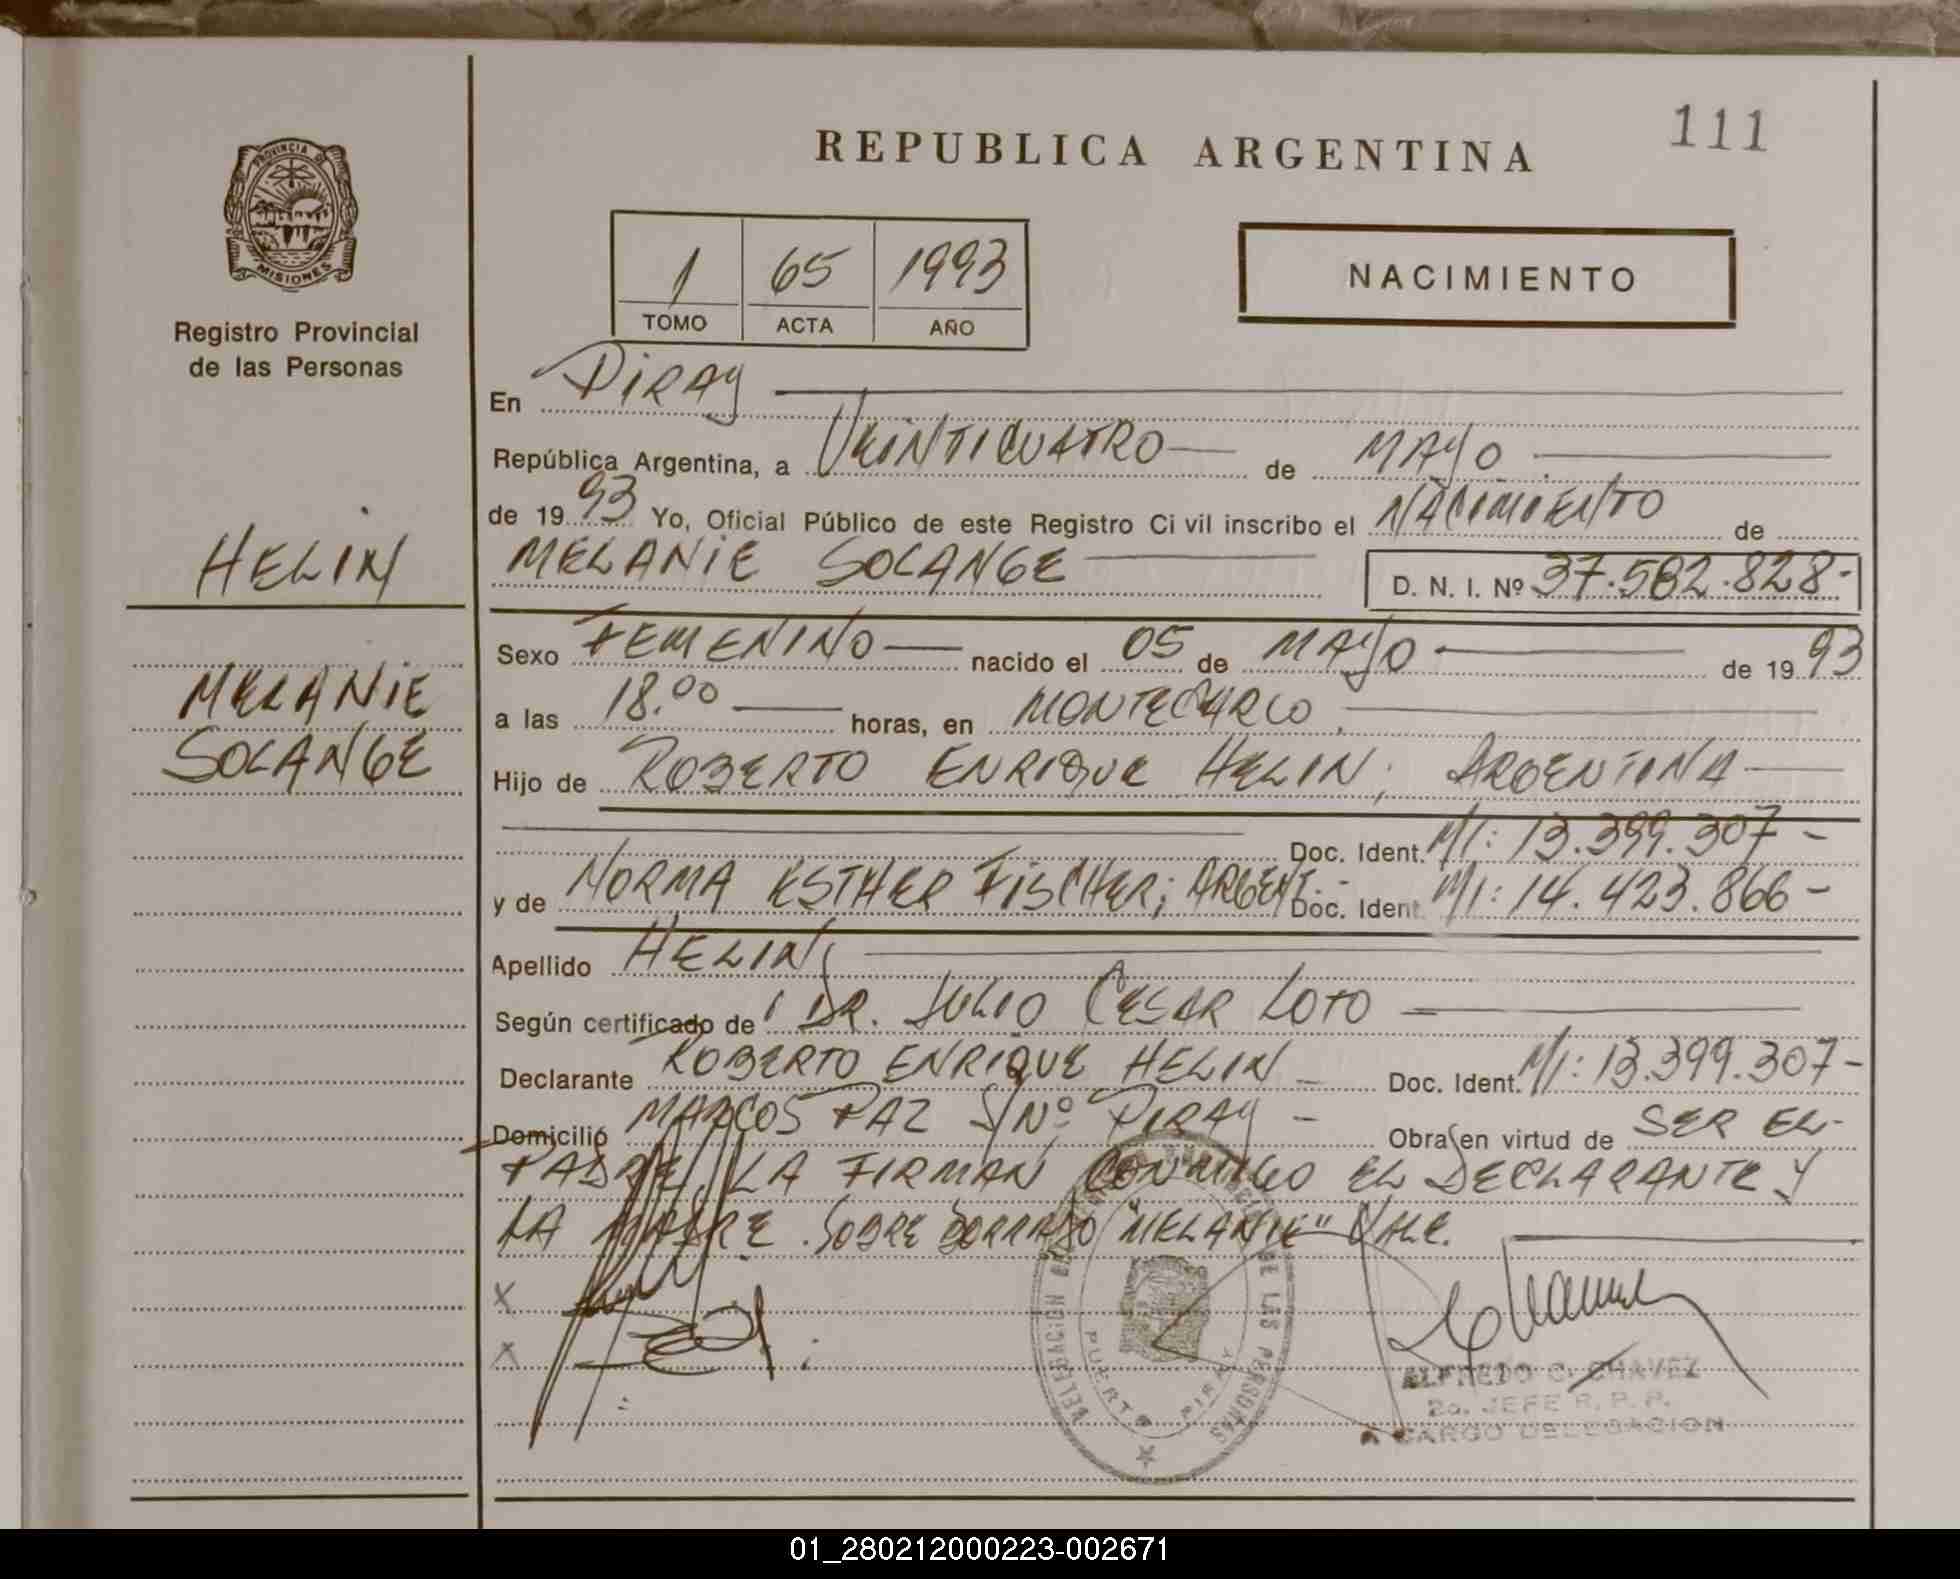 111
REPUBLICA ARGENTINA
PROVINCIA DE
MISIONES
Registro Provincial
de las Personas
1 65 1993
TOMO ACTA AÑO
NACIMIENTO
En PIRAY
República Argentina, a VEINTICUATRO de MAYO
de 1993 Yo, Oficial Público de este Registro Ci vil inscribo el NACIMIENTO de
HELIN
MELANIE SOLANGE D. N. I. Nº 37.582.828-
MELANIE
SOLANGE
Sexo FEMENINO nacido el 05 de MAYO de 1993
a las 18.00 horas, en MONTECARLO
Hijo de ROBERTO ENRIQUE HELIN; ARGENTINA
Doc. Ident. M/I: 13.399.307-
y de NORMA ESTHER FISCHER; ARGENT.- Doc. Ident. M/I: 14.423.866-
Apellido HELIN
Según certificado de DR. JULIO CESAR LOTO
Declarante ROBERTO ENRIQUE HELIN - Doc. Ident. M/I: 13.399.307-
Domicilio MARCOS PAZ S/Nº PIRAY - Obra en virtud de SER EL-
PADRE, LA FIRMAN CONMIGO EL DECLARANTE Y
LA MADRE. SOBRE BORRADO "MELANIE" VALE.
X
X
DELEGACION DE LAS PERSONAS
PUERTO PIRAY
ALFREDO C. CHAVEZ
2o. JEFE R. P. P.
A CARGO DELEGACION
01_280212000223-002671